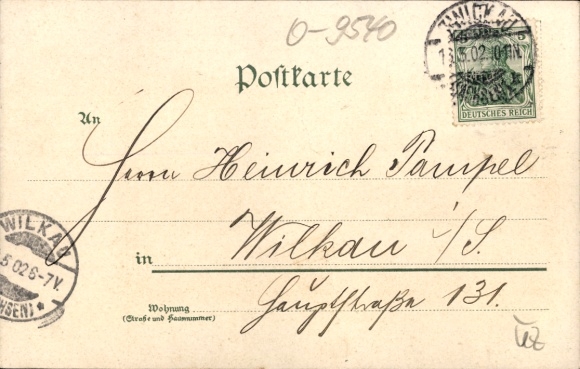 O-9540
ZWICKAU
02.10-11N.
DEUTSCHES REICH
Postkarte
An
Herrn Heinrich Pampel
WILKAU
5.02 6-7V.
in Wilkau i/S.
Wohnung Hauptstraße 131.
(Straße und Hausnummer)